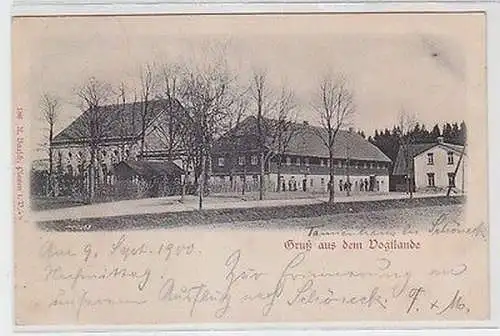 Tannenhaus bei Schöneck
Gruß aus dem Vogtlande
Am 9. Sept. 1900.
Nachmittag.
Zur Erinnerung an
unseren Ausflug nach Schöneck.
T. + M.